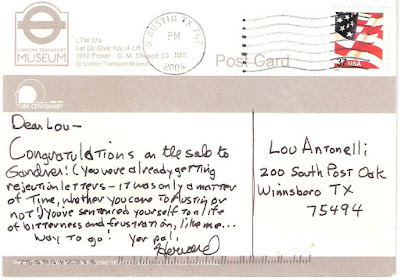 LONDON TRANSPORT
MUSEUM
LTM 374
Let Us Give You A Lift
1912 Poster G. M. Ellwood
© London Transport Museum
S AUSTIN TX 787
PM
30 MAR
2004
Post Card
37 USA
TUBE CENTENARY
Dear Lou—
Congratulations on the sale to
Gardner! (You were already getting
rejection letters — it was only a matter
of Time, whether you came to Austin or
not!) You've sentenced yourself to a life
of bitterness and frustration, like me...
Way to go! Yer pal,
Howard
Lou Antonelli
200 South Post Oak
Winnsboro TX
75494